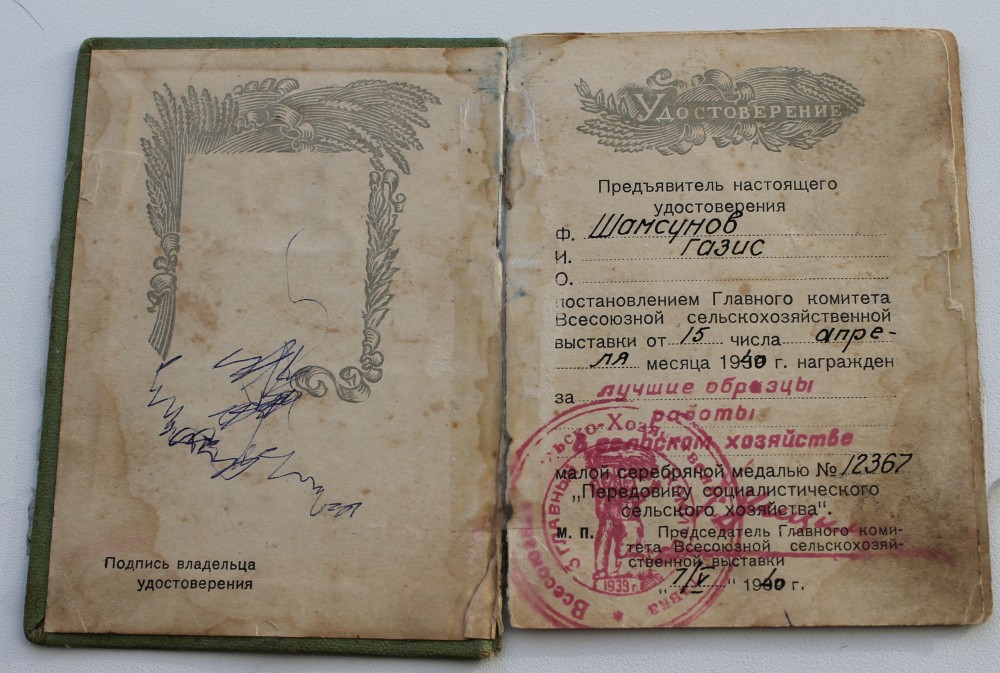 Подпись владельца
удостоверения
Удостоверение
Предъявитель настоящего
удостоверения
Ф. Шамсунов
И. Газис
О.
постановлением Главного комитета
Всесоюзной сельскохозяйственной
выставки от 15 числа апре-
ля месяца 1940 г. награжден
за лучшие образцы
работы
в сельском хозяйстве
малой серебряной медалью № 12367
„Передовику социалистического
сельского хозяйства".
М. П. Председатель Главного коми-
тета Всесоюзной сельскохозяй-
ственной выставки
„7/V" 1940 г.
1939 г.